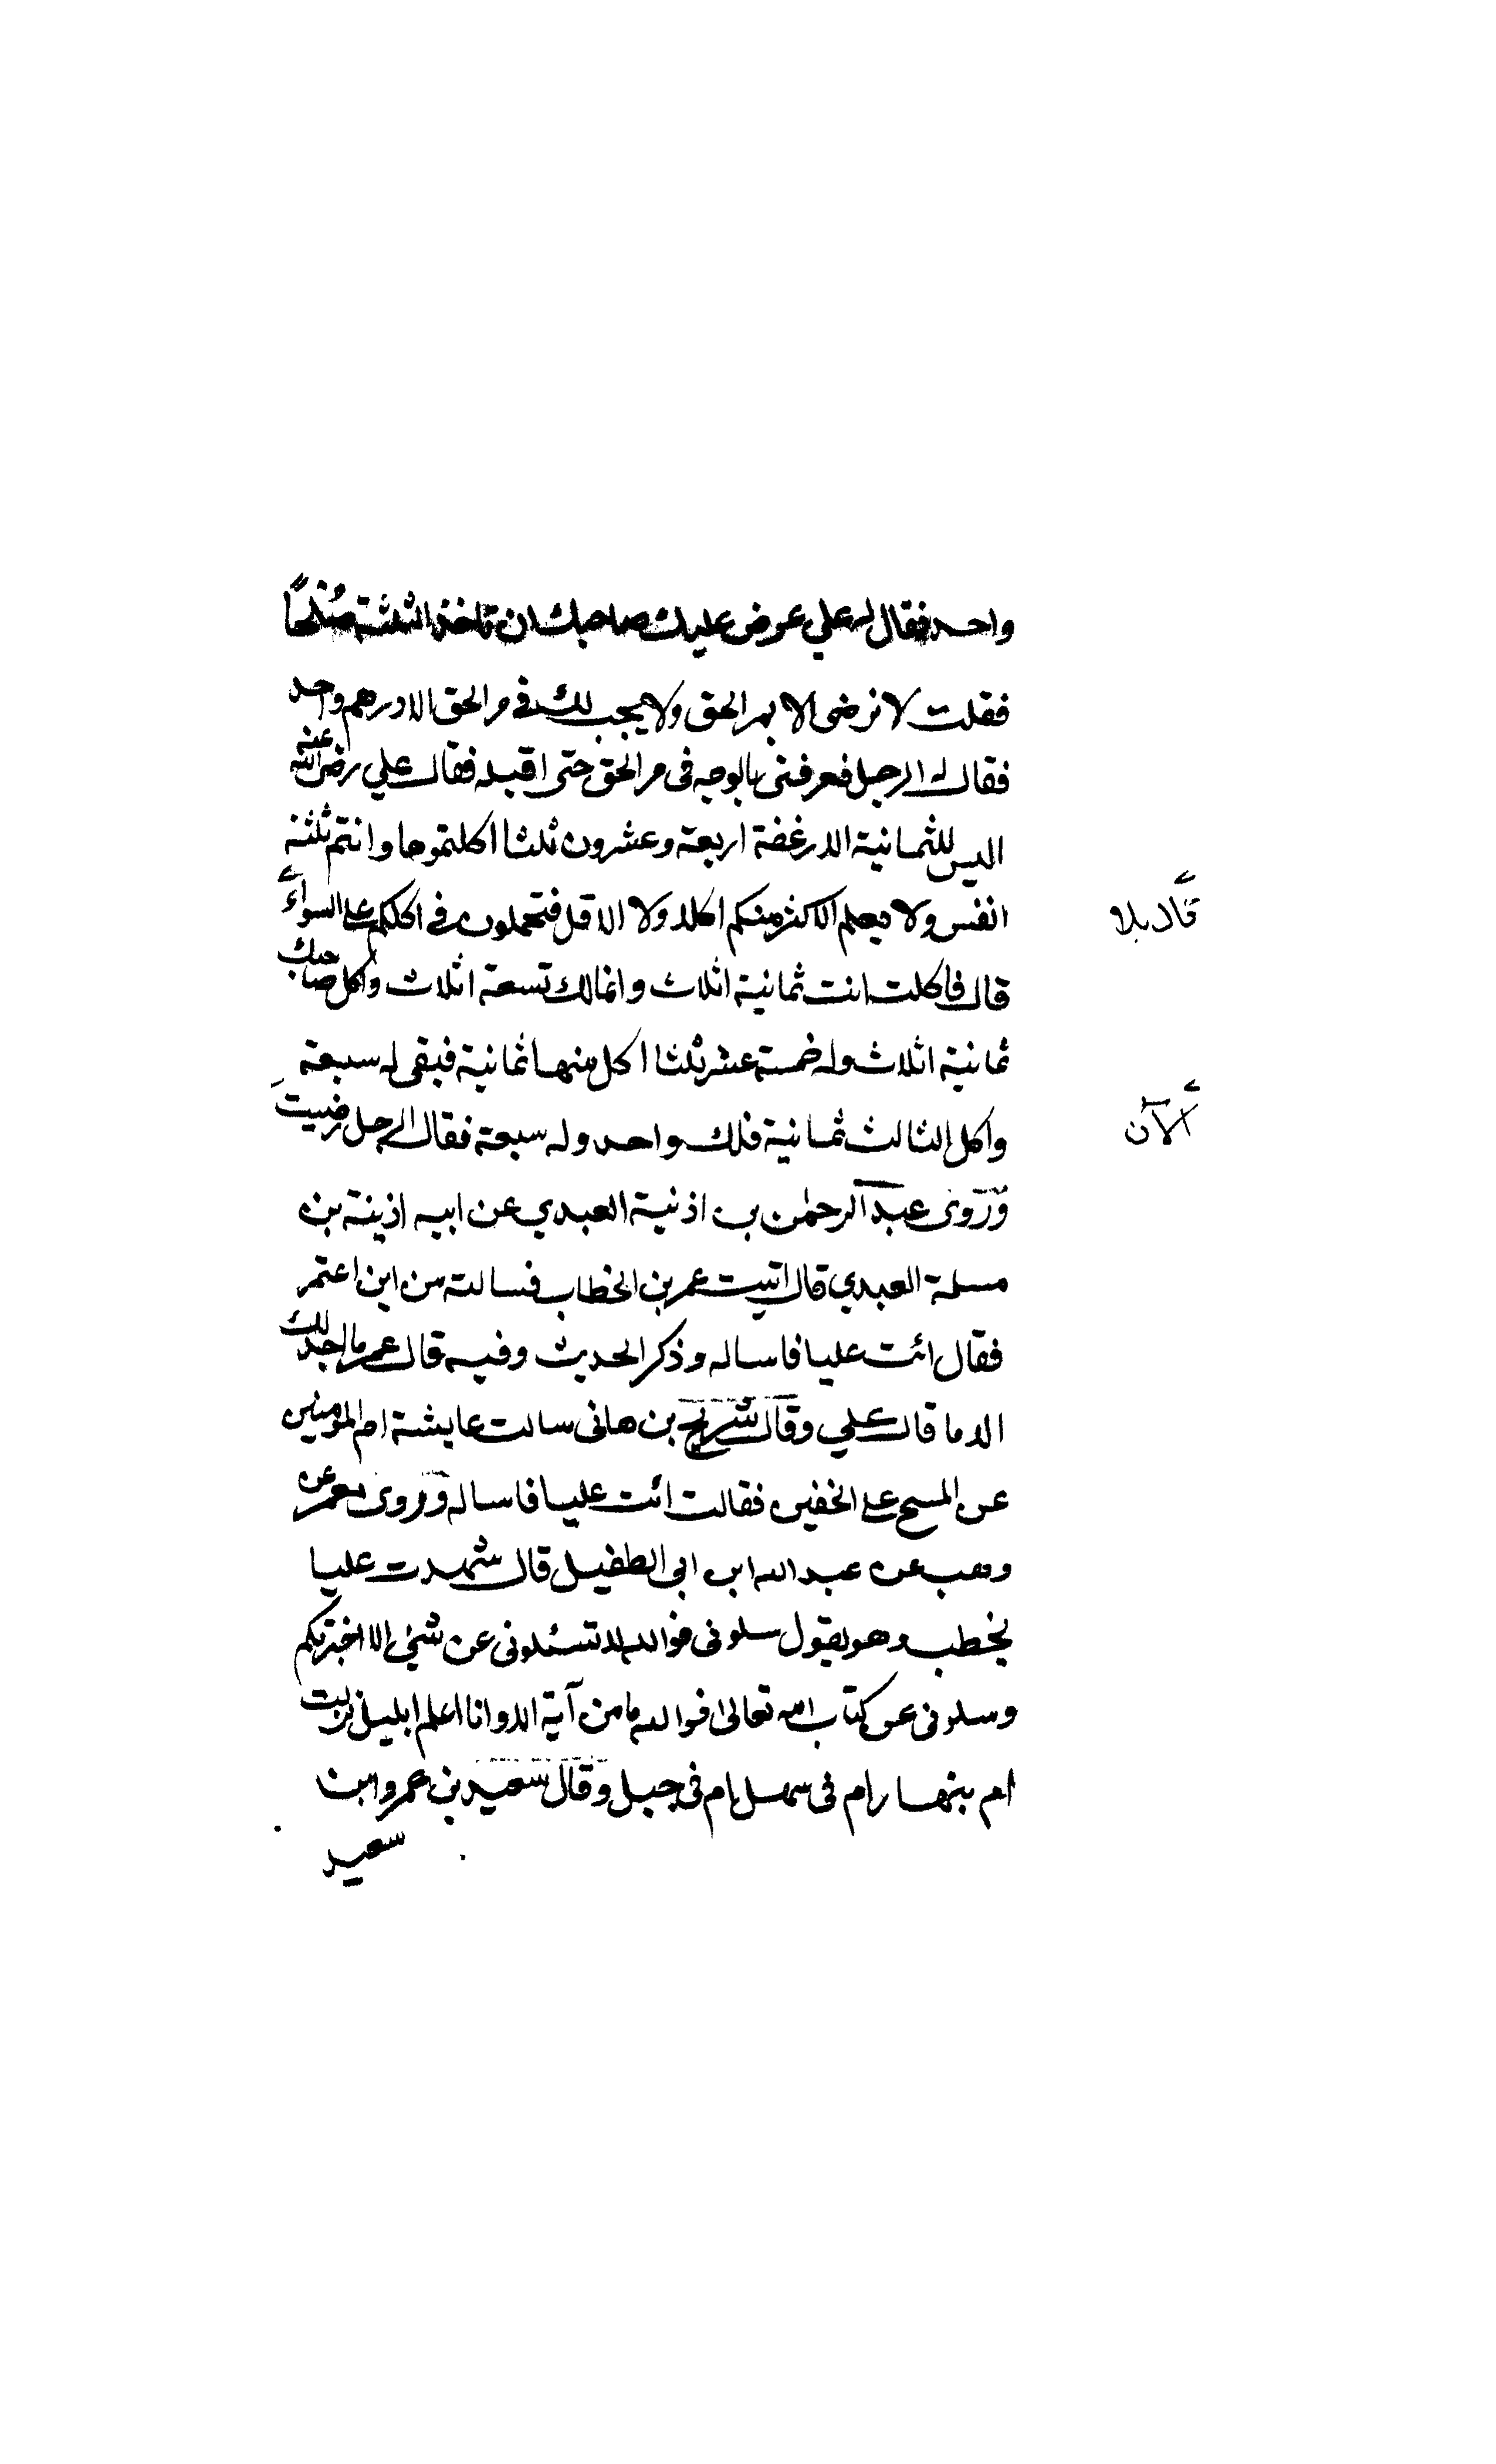 واحد فقال له علي عرض عليك صاحبك ان تاخذ الثلثة صُلحًا
فقلت لا نرضى الا بمر الحق ولا يجب لك في مر الحق الا درهم واحد
فقال له الرجل فعرفني بالوجه في مر الحق حتى اقبله فقال علي رضي الله عنه
اليس للثمانية الارغفة اربعة وعشرون ثلثا اكلتموها وانتم ثلثة
انفس ولا يعلم الاكثر منكم اكلا ولا الاقل فتحملون في اكلكم على السواء
قال بلا
قال فاكلت انت ثمانية اثلاث وانما لك تسعة اثلاث واكل صاحبك
ثمانية اثلاث وله خمسة عشر ثلثا اكل منها ثمانية فبقى له سبعة
واكل الثالث ثمانية فلك واحد وله سبعة فقال الرجل رضيت
الآن
وروى عبد الرحمن بن اذنية العبدي عن ابيه اذينة بن
مسلمة العبدي قال اتيت عمر بن الخطاب فسالته من اين اعتمر
فقال ائت عليا فاساله وذكر الحديث وفيه قال عمر ما اجد لك
الا ما قال علي وقال شريح بن هانى سالت عايشة ام المؤمنين
عن المسح على الخفين فقالت ائت عليا فاساله وروى معمر عن
وهب عن عبد الله ابن ابي الطفيل قال شهدت عليا
يخطب وهو يقول سلوني فوالله لا تسئلوني عن شيئ الا اخبرتكم
وسلوني عن كتاب الله تعالى فوالله ما من آية الا وانا اعلم ابليل نزلت
ام بنهار ام في سهل ام في جبل وقال سعيد بن عمرو ابن
سعيد